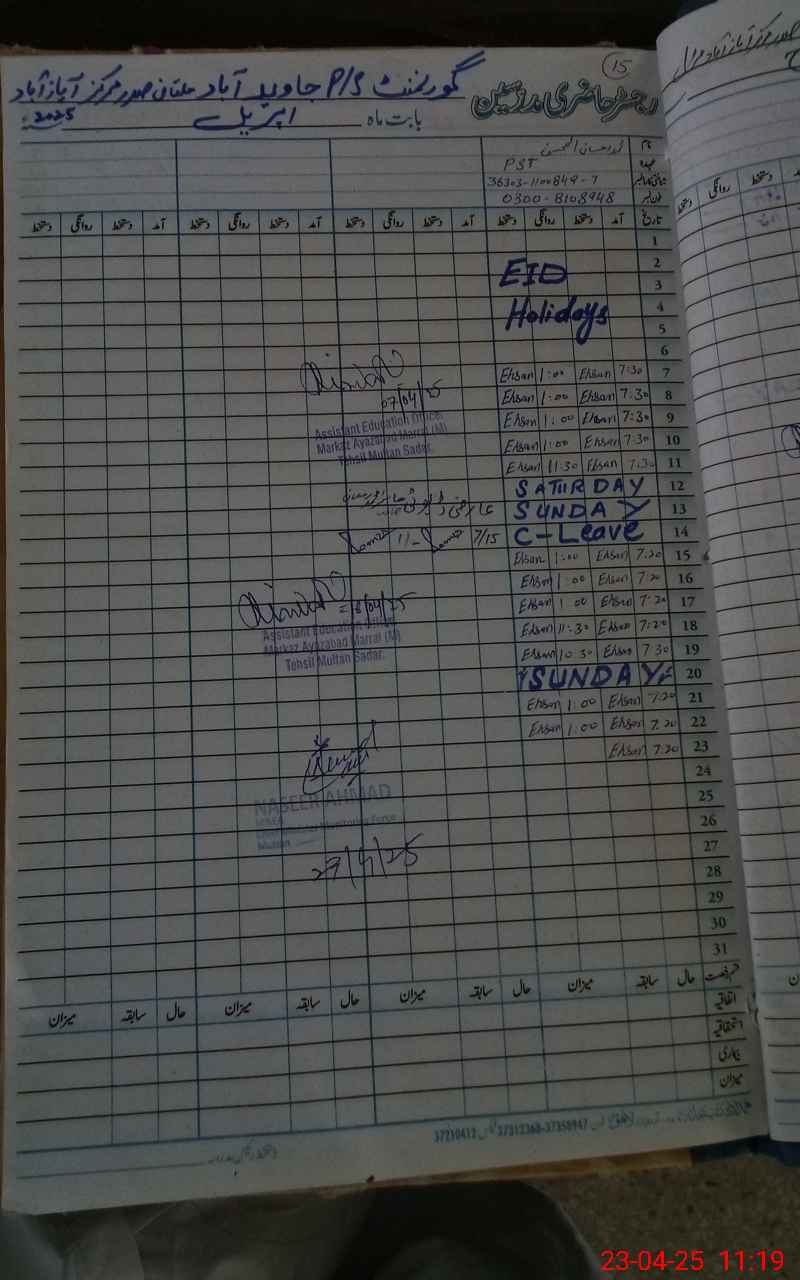 15
رجسٹر حاضری مدرسین گورنمنٹ P/S جاوید آباد ملتان صدر مرکز آیاز آباد
بابت ماہ اپریل 2025
نام
عہدہ PST
36303-1100849-7
فون نمبر 0300-8108948
تاریخ آمد دستخط روانگی دستخط آمد دستخط روانگی دستخط آمد دستخط روانگی دستخط آمد دستخط روانگی دستخط
1
2
EID
3
4
Holidays
5
6
7 7:30 Ehsan 1:00 Ehsan
8 7:30 Ehsan 1:00 Ehsan
07/04/25
9 7:30 Ehsan 1:00 Ehsan
Assistant Education Officer
Markaz Ayazabad Marral (M)
Tehsil Multan Sadar.
10 7:30 Ehsan 1:00 Ehsan
11 7:30 Ehsan 11:30 Ehsan
12 SATURDAY
13 SUNDAY
14 C-Leave
7/15
15 7:20 Ehsan 1:00 Ehsan
16 7:20 Ehsan 1:00 Ehsan
17 7:20 Ehsan 1:00 Ehsan
18 7:20 Ehsan 11:30 Ehsan
Assistant Education Officer
Markaz Ayazabad Marral (M)
Tehsil Multan Sadar.
19 7:30 Ehsan 10:30 Ehsan
20 SUNDAY
21 7:20 Ehsan 1:00 Ehsan
22 7:20 Ehsan 1:00 Ehsan
23 7:20 Ehsan
24
25
NASEER AHMAD
Monitoring Force
Multan
26
27
28
29
30
31
قسم رخصت حال سابقہ میزان حال سابقہ میزان حال سابقہ میزان حال سابقہ میزان
اتفاقیہ
استحقاقیہ
بیماری
میزان
37210412 37312368-37358947
23-04-25 11:19